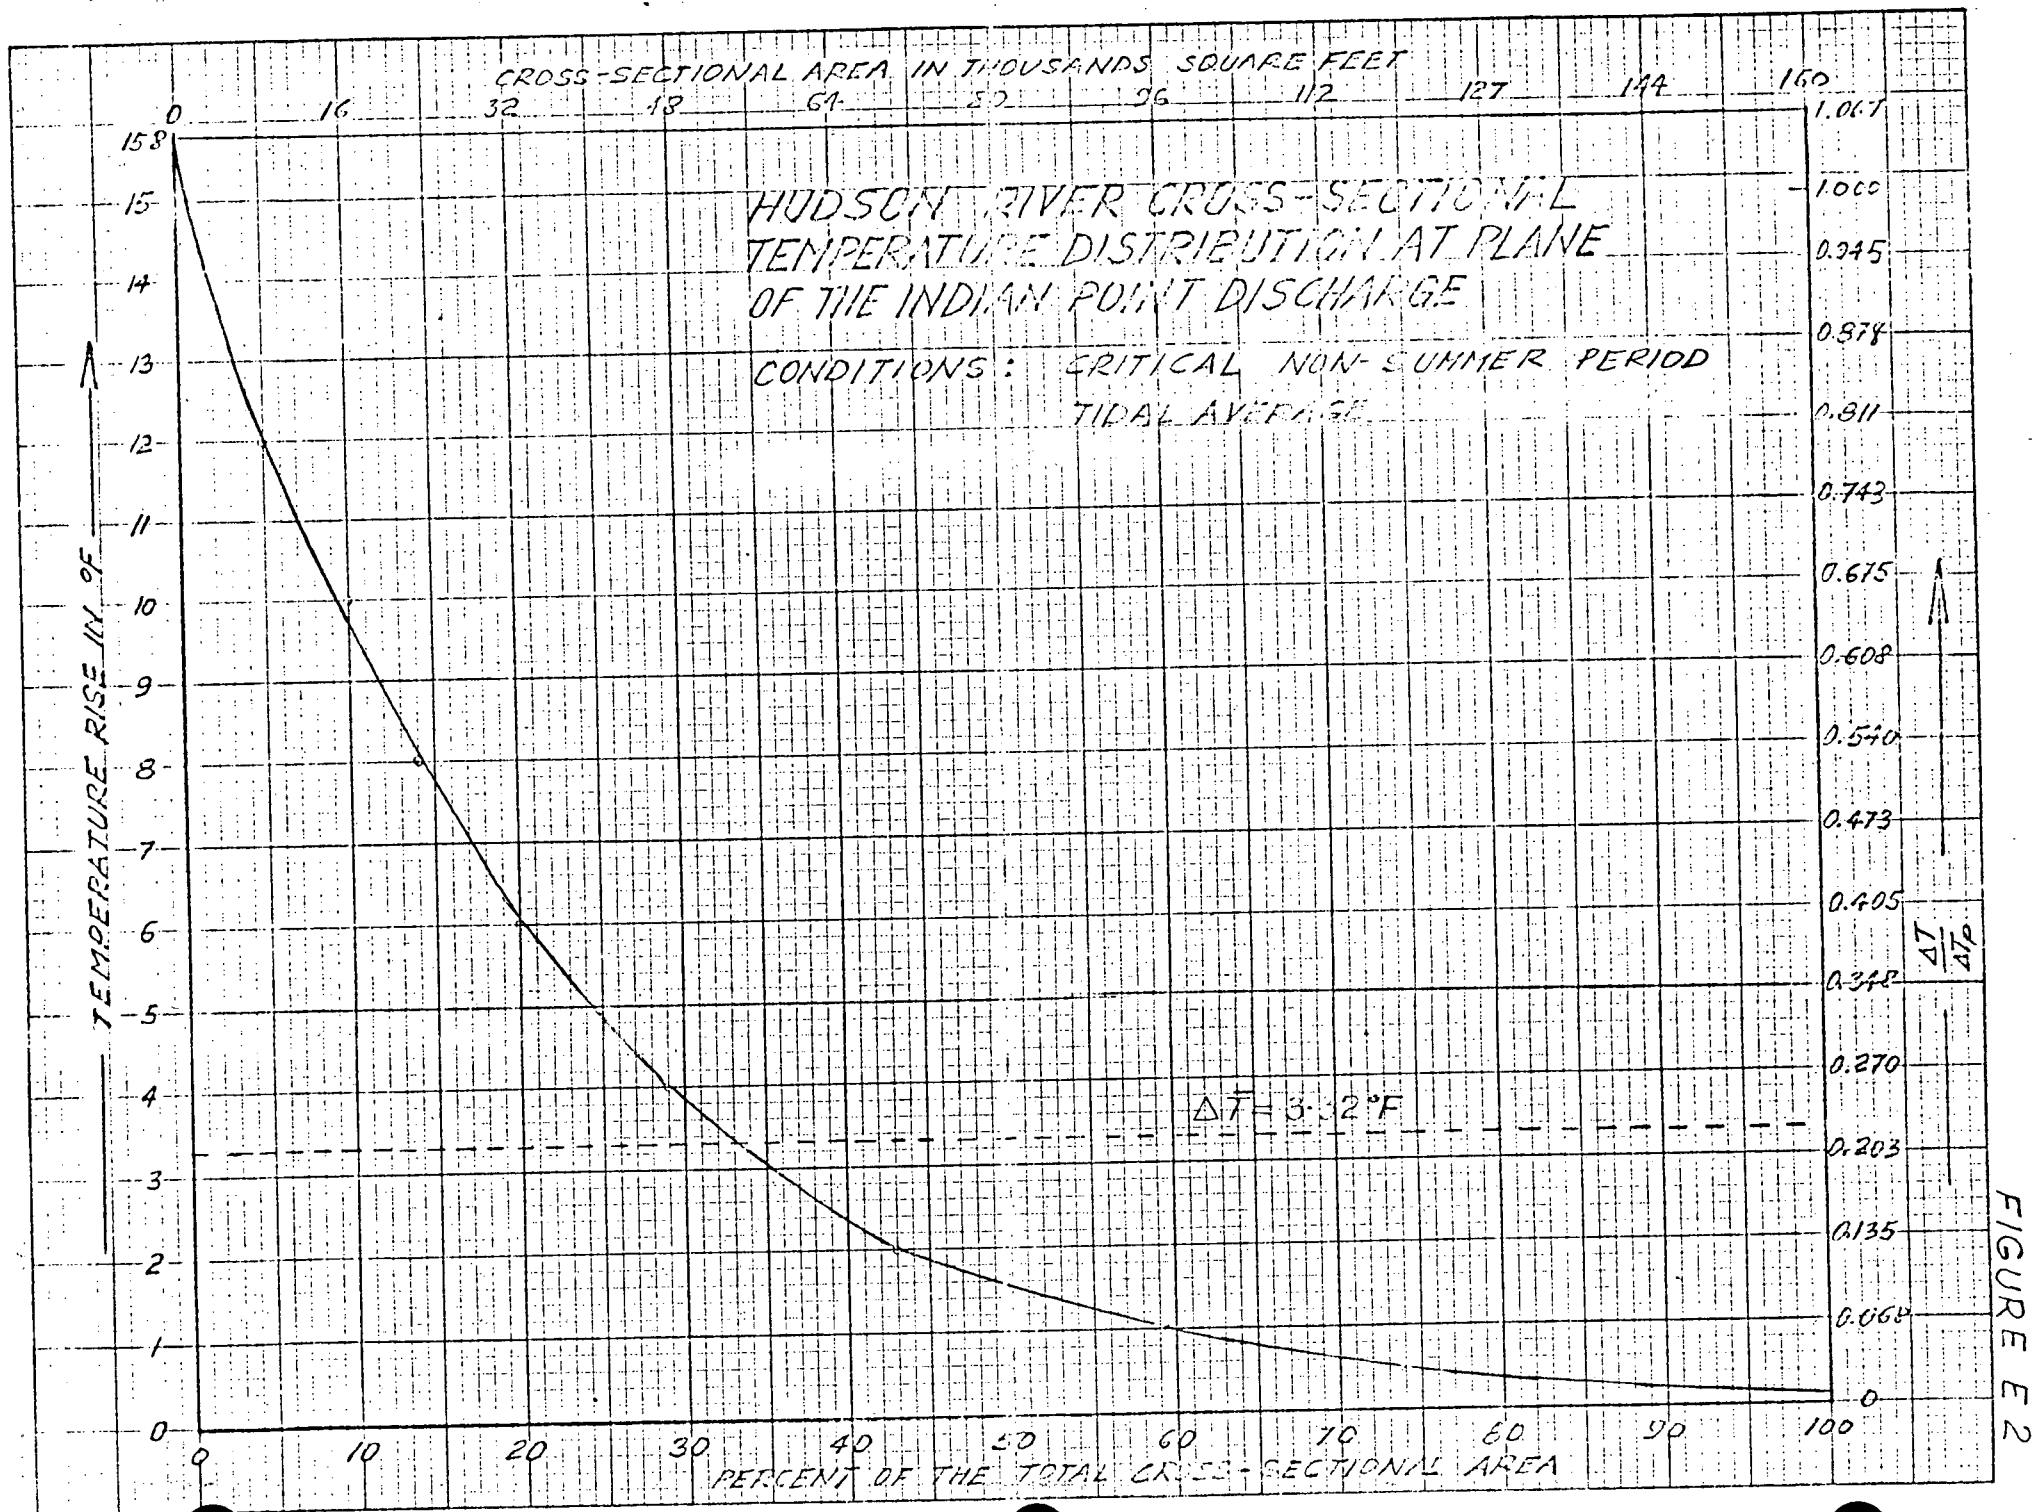 CROSS-SECTIONAL AREA IN THOUSANDS SQUARE FEET
0 16 32 48 64 80 96 112 127 144 160
HUDSON RIVER CROSS-SECTIONAL
TEMPERATURE DISTRIBUTION AT PLANE
OF THE INDIAN POINT DISCHARGE
CONDITIONS: CRITICAL NON-SUMMER PERIOD
TIDAL AVERAGE
TEMPERATURE RISE IN °F
15.8
15
14
13
12
11
10
9
8
7
6
5
4
3
2
1
0
1.067
1.000
0.945
0.878
0.811
0.743
0.675
0.608
0.540
0.473
0.405
0.348
0.270
0.203
0.135
0.068
0
ΔT/ΔTp
ΔT̅ = 3.32°F
0 10 20 30 40 50 60 70 80 90 100
PERCENT OF THE TOTAL CROSS-SECTIONAL AREA
FIGURE E2